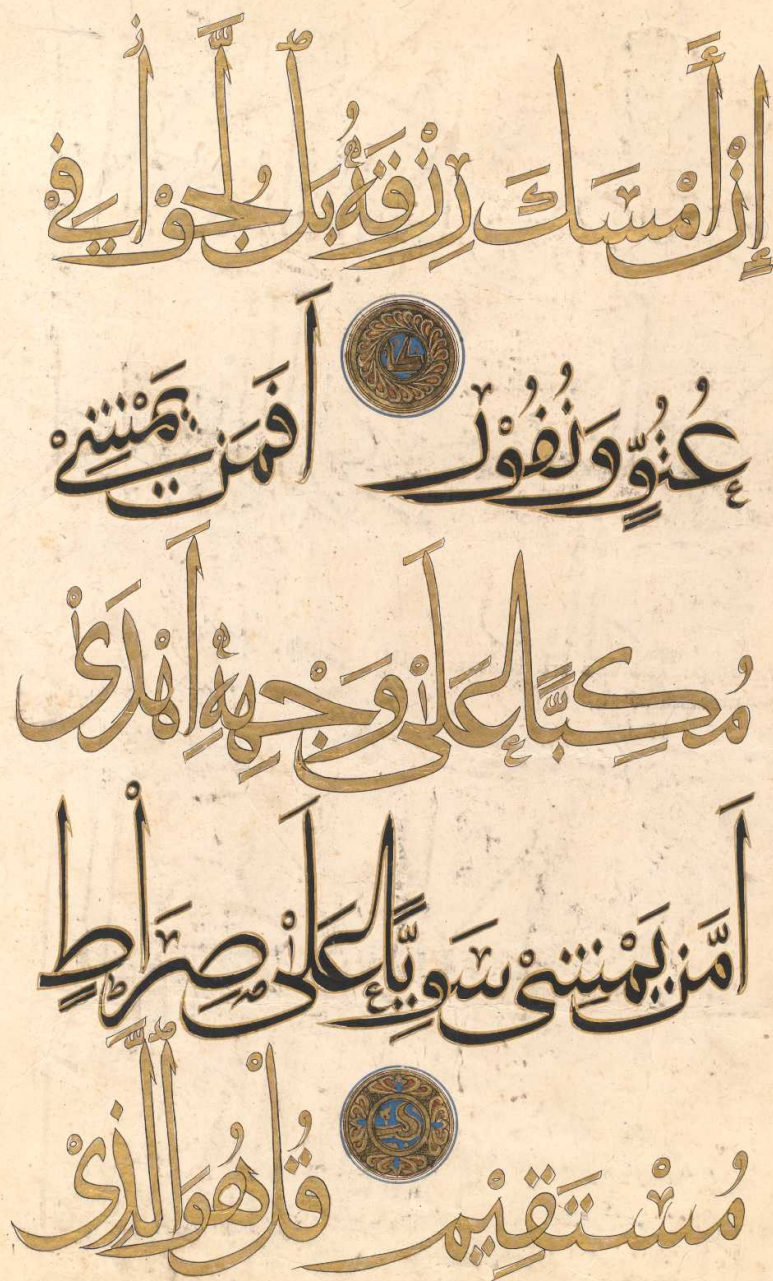 إِنْ أَمْسَكَ رِزْقَهُ بَلْ لَّجُّوْا فِيْ
عُتُوٍّ وَنُفُوْرٍ اَفَمَنْ يَمْشِيْ
مُكِبًّا عَلٰى وَجْهِهٖ اَهْدَىٰ
اَمَّنْ يَمْشِيْ سَوِيًّا عَلٰى صِرَاطٍ
مُسْتَقِيْمٍ قُلْ هُوَ الَّذِيْ